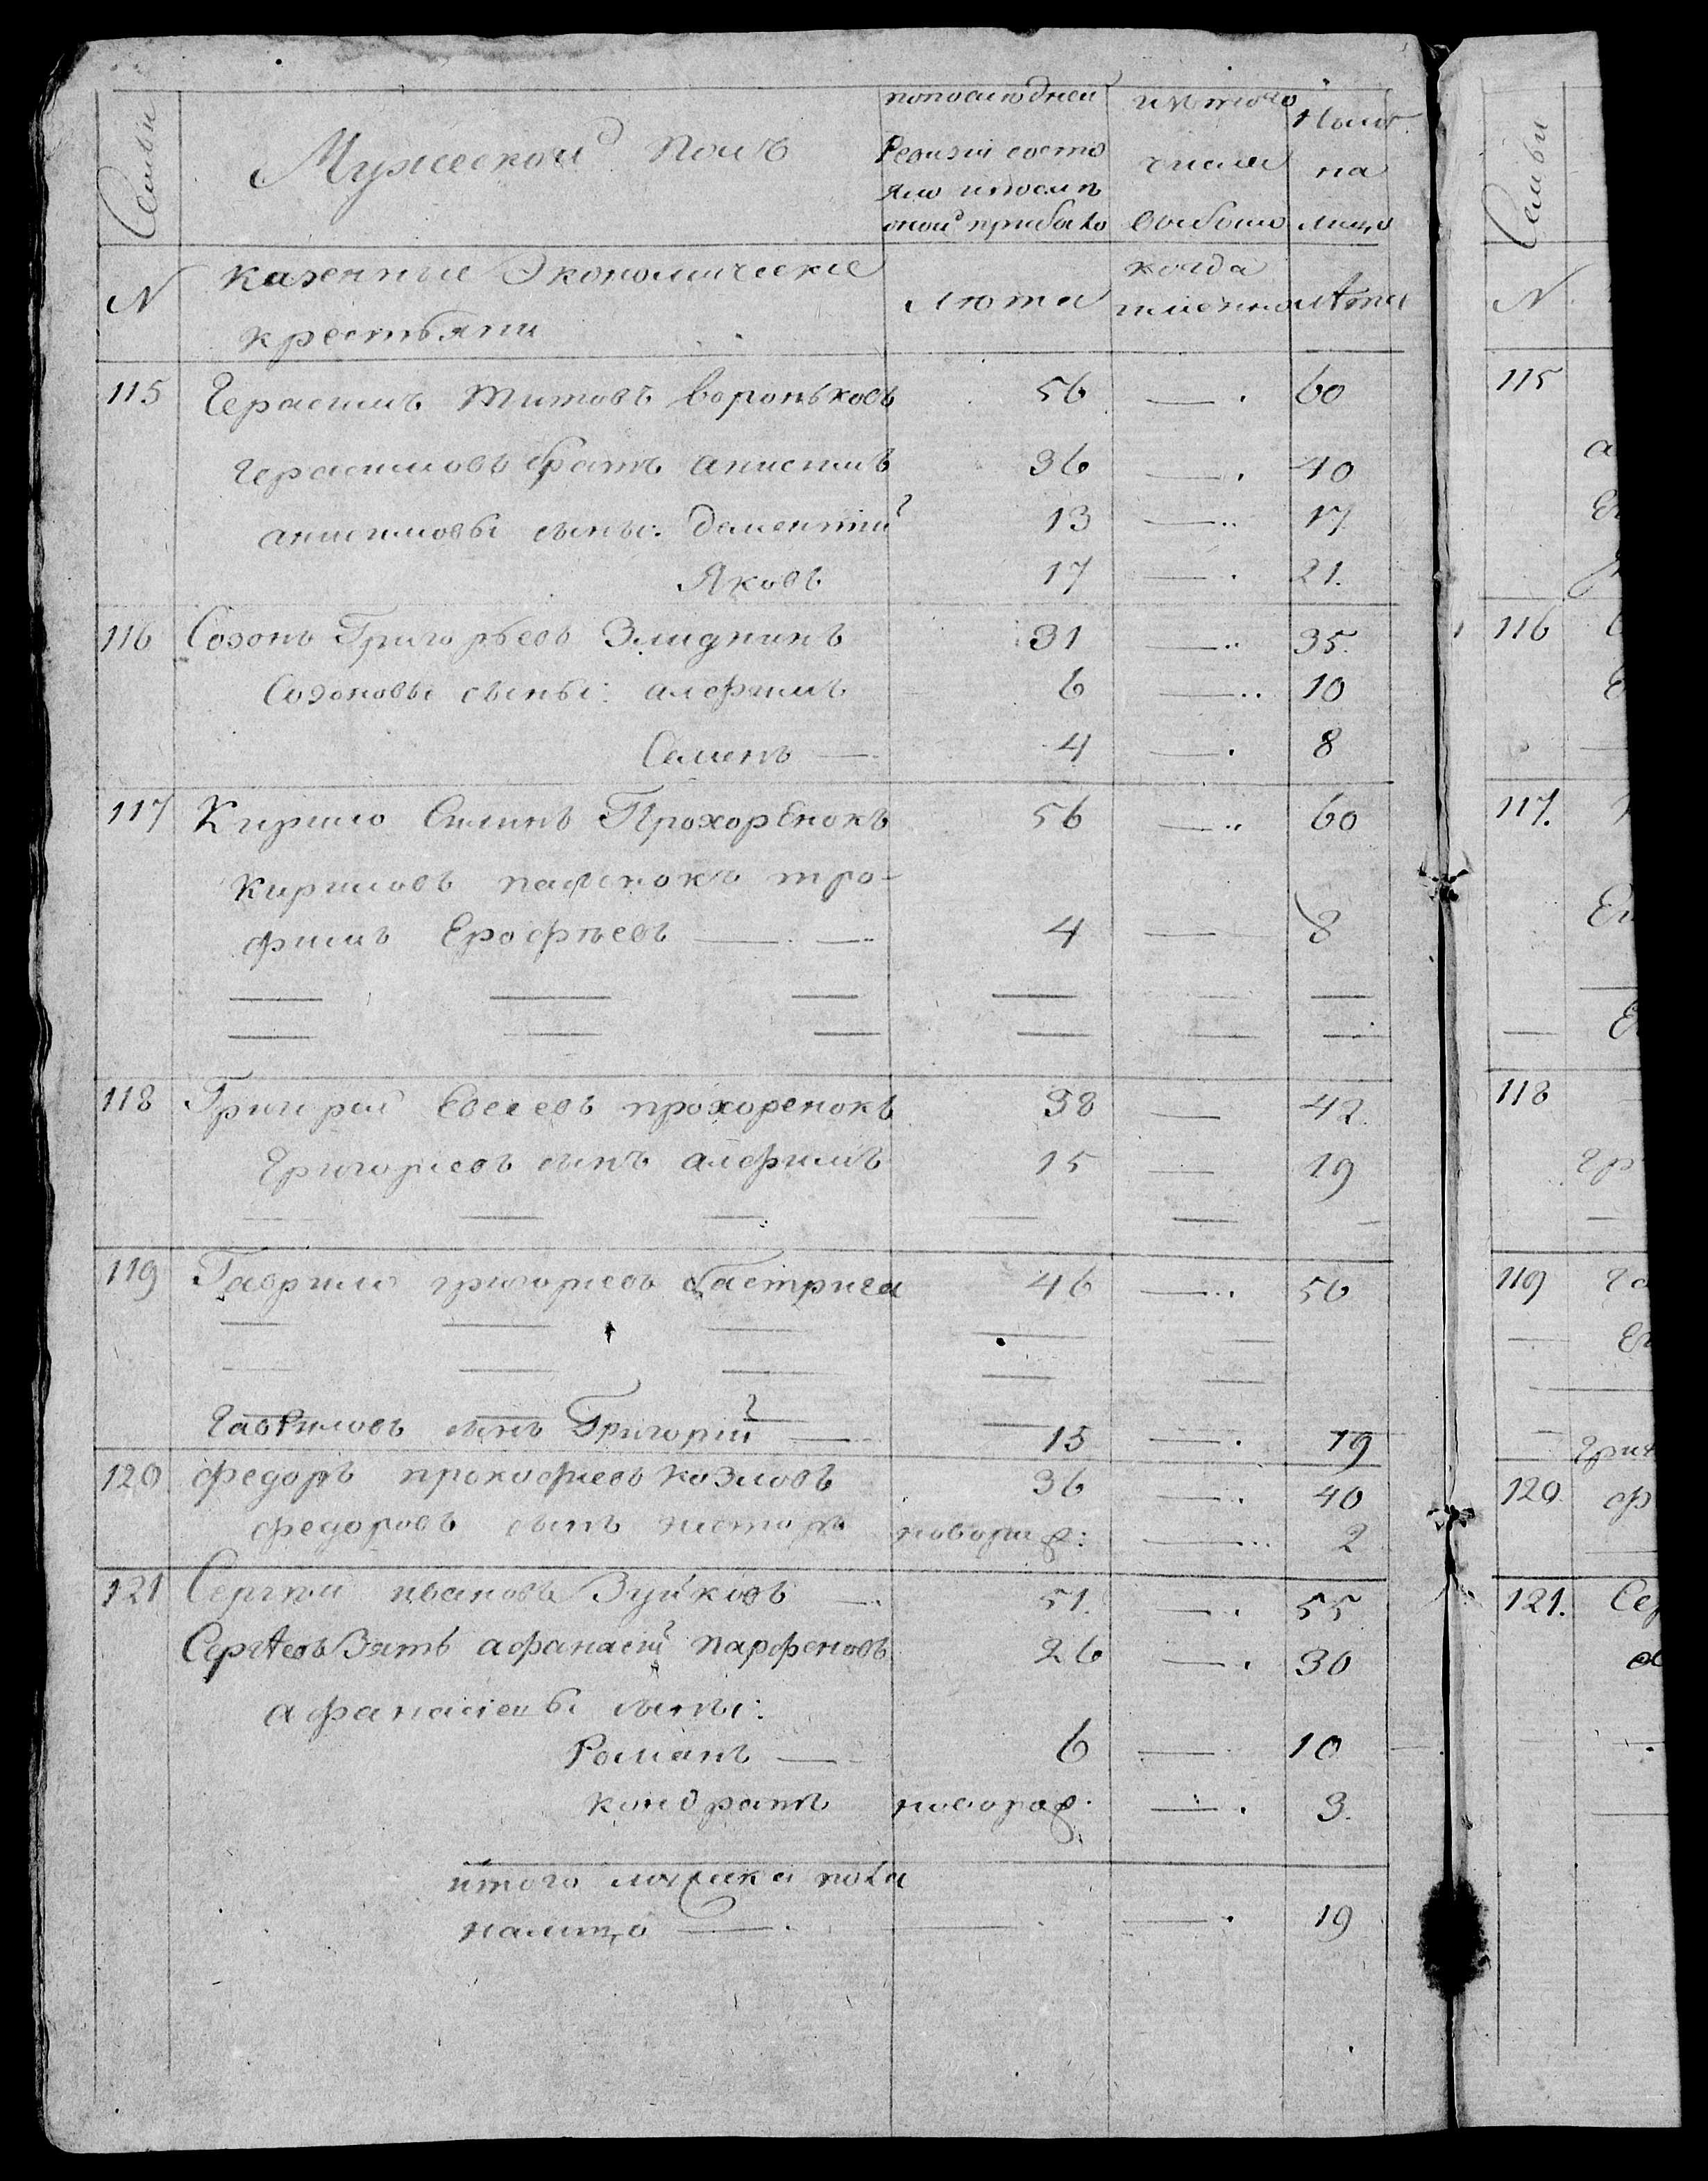 Семьи
Мужеской полъ
попоследней
Ревизии состо
яло ипосли
оной прибыло
изтого
числа
выбыло
Ныне
на
лицо
N
казенные Экономические
крестьяни
лета
когда
имянно
лѣта
115 Герасимъ титовъ воронковъ 56 — 60
герасимовъ братъ анисимъ 36 — 40
анисимовы сыны: дементий 13 — 17
Яковъ 17 — 21.
116 Созонъ Григорьевъ Злиднинъ 31 — 35.
Созоновы сыны: алефимъ 6 — 10
Семенъ — 4 — 8
117 Кирило Силинъ Прохорѣнокъ 56 — 60
Кириловъ тро-
фимъ Ерофѣевъ — 4 — 8
118 Григорей Евсеевъ прохоренокъ 38 — 42.
Григориевъ сынъ алефимъ 15 — 19
119 Гаврило григориевъ бастрига 46 — 50
Гавриловъ сынъ Григорий — 15 — 19
120 федоръ прокофиевъ козловъ 36 — 40
федоровъ сынъ нестеръ новорож: — 2
121 Сергѣй ивановъ Зуйковъ — 51. — 55
Сергѣевъ Зять афанасий парфеновъ 26 — 30
афанасиевы сыны:
Романъ — 6 — 10
кондратъ новорож: — 3.
итого мужеска пола
налицо — 19
Семьи
N
115
116
117.
118
119
120
121. Сер